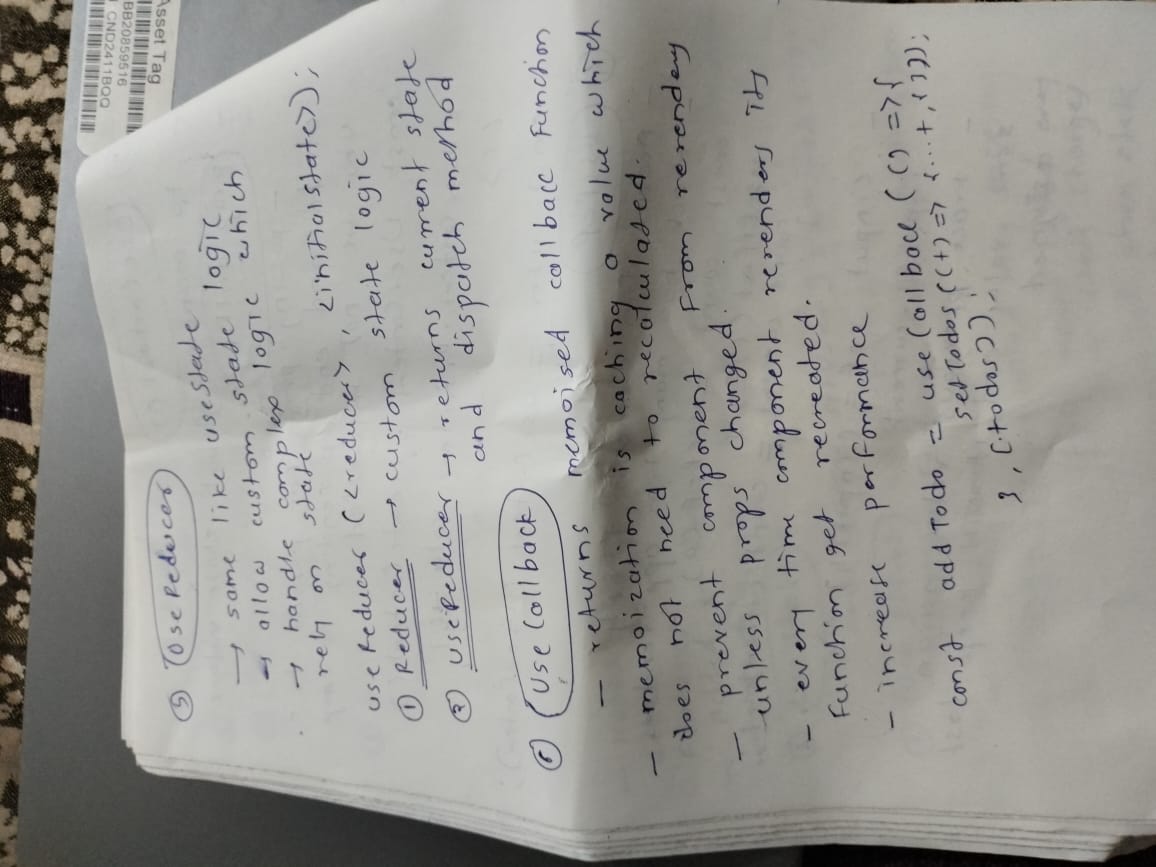 Asset Tag
BB20859516
CND2411BQQ
⑤ UseReducer
→ same like useState
→ allow custom state logic
→ handle complex logic which
rely on state
useReducer (<reducer>, <initialstate>);
① Reducer → custom state logic
② UseReducer → returns current state
and dispatch method
⑥ Use Callback
- returns memoised callback function
- memoization is caching a value which
does not need to recalculated.
- prevent component from rerendery
unless props changed.
- every time component rerenders its
function get recreated.
- increase performance
const addTodo = useCallback (() => {
setTodos((t) => [...t, []]);
}, [todos]);